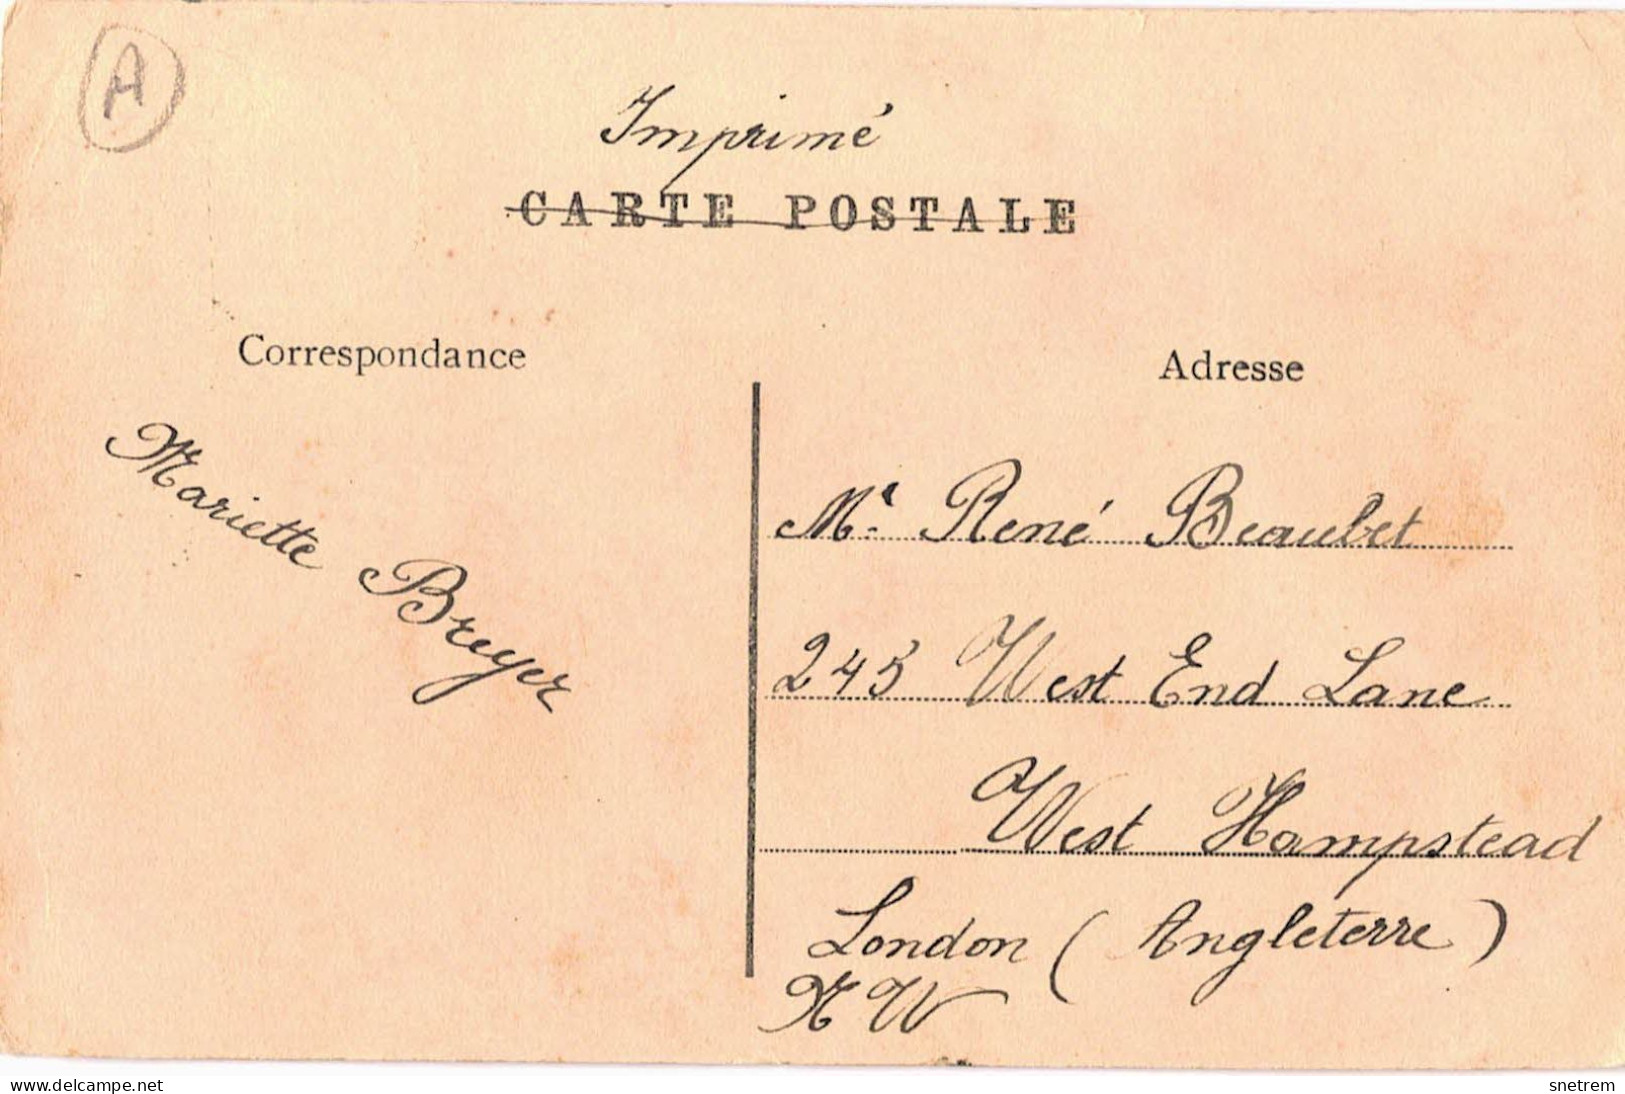 A
Imprimé
CARTE POSTALE
Correspondance
Adresse
Mariette Breyer
Mr. René Beaubet
245 West End Lane
West Hampstead
London (Angleterre)
NW
www.delcampe.net
snetrem